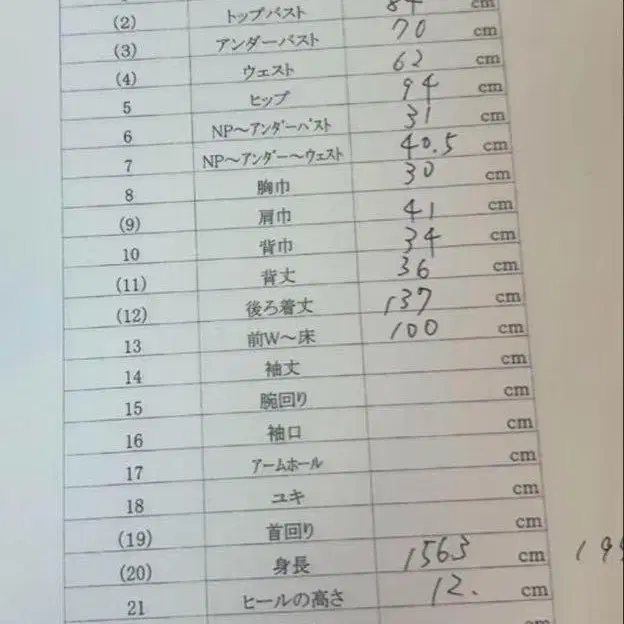 (2) トップバスト 84 cm
(3) アンダーバスト 70 cm
(4) ウェスト 62 cm
5 ヒップ 94 cm
6 NP～アンダーバスト 31 cm
7 NP～アンダー～ウェスト 40.5 cm
8 胸巾 30 cm
(9) 肩巾 41 cm
10 背巾 34 cm
(11) 背丈 36 cm
(12) 後ろ着丈 137 cm
13 前W～床 100 cm
14 袖丈 cm
15 腕回り cm
16 袖口 cm
17 アームホール cm
18 ユキ cm
(19) 首回り cm
(20) 身長 1563 cm
21 ヒールの高さ 12. cm